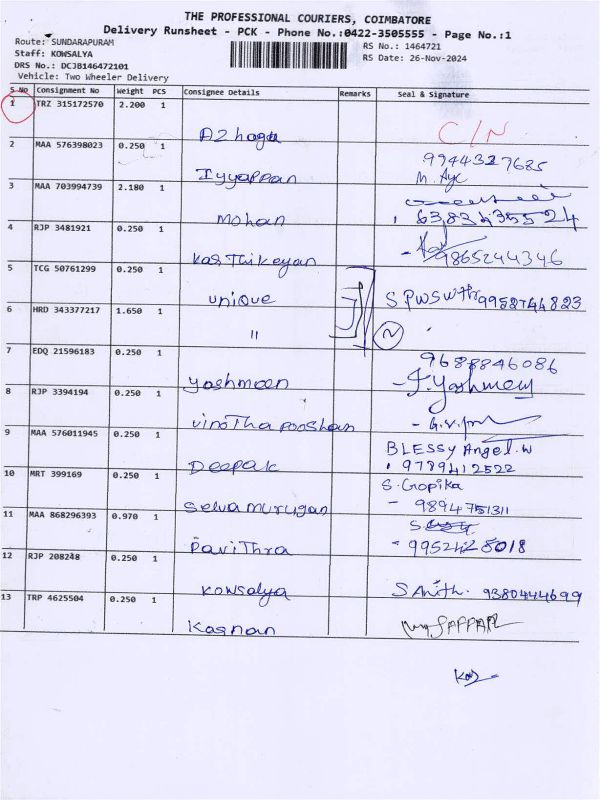 THE PROFESSIONAL COURIERS, COIMBATORE
Delivery Runsheet - PCK - Phone No.:0422-3505555 - Page No.:1
Route: SUNDARAPURAM
RS No.: 1464721
Staff: KOWSALYA
RS Date: 26-Nov-2024
DRS No.: DCJB146472101
Vehicle: Two Wheeler Delivery
S No Consignment No Weight PCS Consignee Details Remarks Seal & Signature
1 TRZ 315172570 2.200 1
Azhagu C/N
2 MAA 576398023 0.250 1
9944327685
Iyyappan M. Aye
3 MAA 703994739 2.180 1
Mohan 6383435524
4 RJP 3481921 0.250 1
Karthikeyan 9865244346
5 TCG 50761299 0.250 1
Unique 9952744823
6 HRD 343377217 1.650 1
"
7 EDQ 21596183 0.250 1
9688846086
Yashmeen J. Yashmeen
8 RJP 3394194 0.250 1
Vinotha pooshan
9 MAA 576011945 0.250 1
BLESSY Angel.W
Deepak 9789412522
10 MRT 399169 0.250 1
S. Gopika
Selva Murugan 9894751311
11 MAA 868296393 0.970 1
Pavithra 9952428018
12 RJP 208248 0.250 1
Kowsalya 9380444699
13 TRP 4625504 0.250 1
Kannan